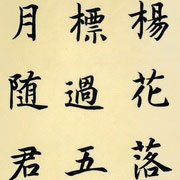 楊花落
標過五
月随君